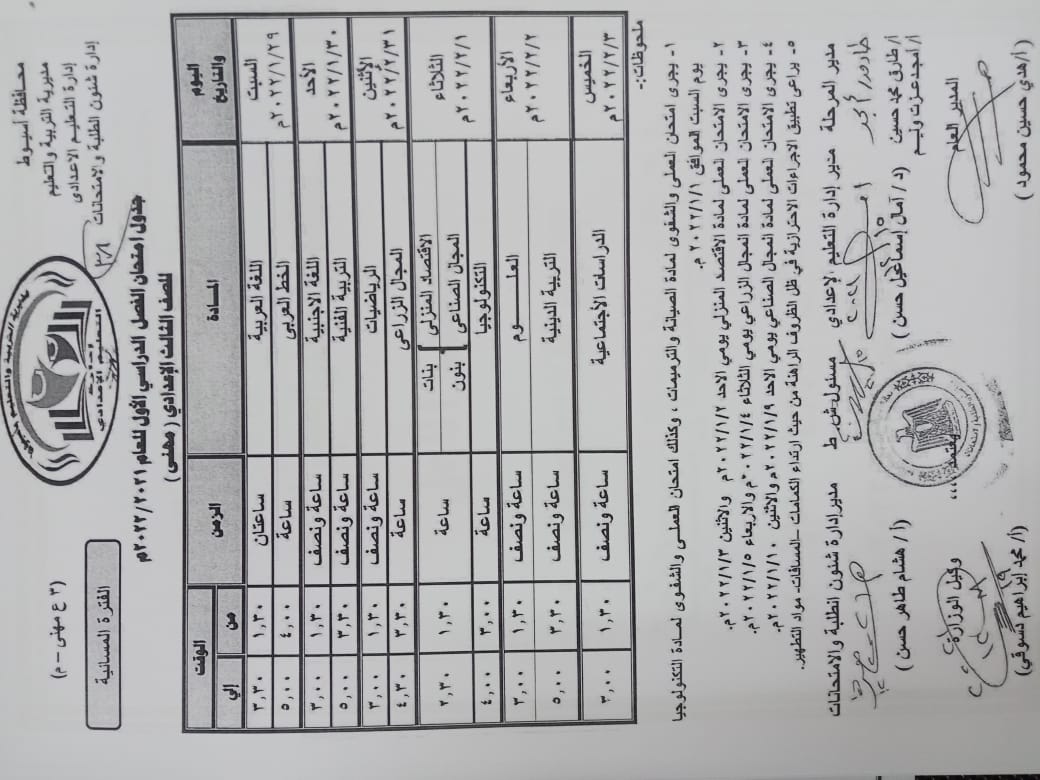 محافظة أسيوط
مديرية التربية والتعليم
إدارة التعليم الاعدادى
إدارة شئون الطلبة والامتحانات
مديرية التربية والتعليم بأسيوط
التعليم الاعدادى
(٣ ع مهنى – م)
الفترة المسائية
جدول امتحان الفصل الدراسي الأول للعام ٢٠٢٢/٢٠٢١م
للصف الثالث الإعدادي ( مهنى )
اليوم والتاريخ المادة الزمن الوقت
من إلي
السبت ٢٠٢٢/١/٢٩م اللغة العربية ساعتان ١,٣٠ ٣,٣٠
الخط العربى ساعة ٤,٠٠ ٥,٠٠
الأحد ٢٠٢٢/١/٣٠م اللغة الاجنبية ساعة ونصف ١,٣٠ ٣,٠٠
التربية الفنية ساعة ونصف ٣,٣٠ ٥,٠٠
الأثنين ٢٠٢٢/١/٣١م الرياضيات ساعة ونصف ١,٣٠ ٣,٠٠
المجال الزراعى ساعة ٣,٣٠ ٤,٣٠
الثلاثاء ٢٠٢٢/٢/١م الاقتصاد المنزلى بنات ساعة ١,٣٠ ٢,٣٠
المجال الصناعى بنون
التكنولوجيا ساعة ٣,٠٠ ٤,٠٠
الأربعاء ٢٠٢٢/٢/٢م العلـــوم ساعة ونصف ١,٣٠ ٣,٠٠
التربية الدينية ساعة ونصف ٣,٣٠ ٥,٠٠
الخميس ٢٠٢٢/٢/٣م الدراسات الأجتماعية ساعة ونصف ١,٣٠ ٣,٠٠
ملحوظات:-
١- يجرى امتحان العملى والشفوى لمادة الصيانة والترميمات ، وكذلك امتحان العملى والشفوى لمادة التكنولوجيا
يوم السبت الموافق ٢٠٢٢/١/١ م.
٢- يجرى الامتحان العملى لمادة الاقتصاد المنزلي يومي الاحد ٢٠٢٢/١/٢م والاثنين ٢٠٢٢/١/٣م.
٣- يجرى الامتحان العملى لمادة المجال الزراعي يومي الثلاثاء ٢٠٢٢/١/٤م والاربعاء ٢٠٢٢/١/٥م.
٤- يجرى الامتحان العملى لمادة المجال الصناعي يومي الاحد ٢٠٢٢/١/٩م والاثنين ٢٠٢٢/١/١٠م.
٥- يراعى تطبيق الاجراءات الاحترازية في ظل الظروف الراهنة من حيث ارتداء الكمامات – المسافات- مواد التطهير.
مدير المرحلة مدير إدارة التعليم الإعدادي مسئول ش ط مدير إدارة شئون الطلبة والامتحانات
أ/ طارق محمد حسين (د / آمال إسماعيل حسن ) (أ / هشام طاهر حسن )
أ/ أمجد عزت وليم
يعتمد،،،،
المدير العام وكيل الوزارة
( أ/هدي حسين محمود ) (أ/ محمد ابراهيم دسوقي)